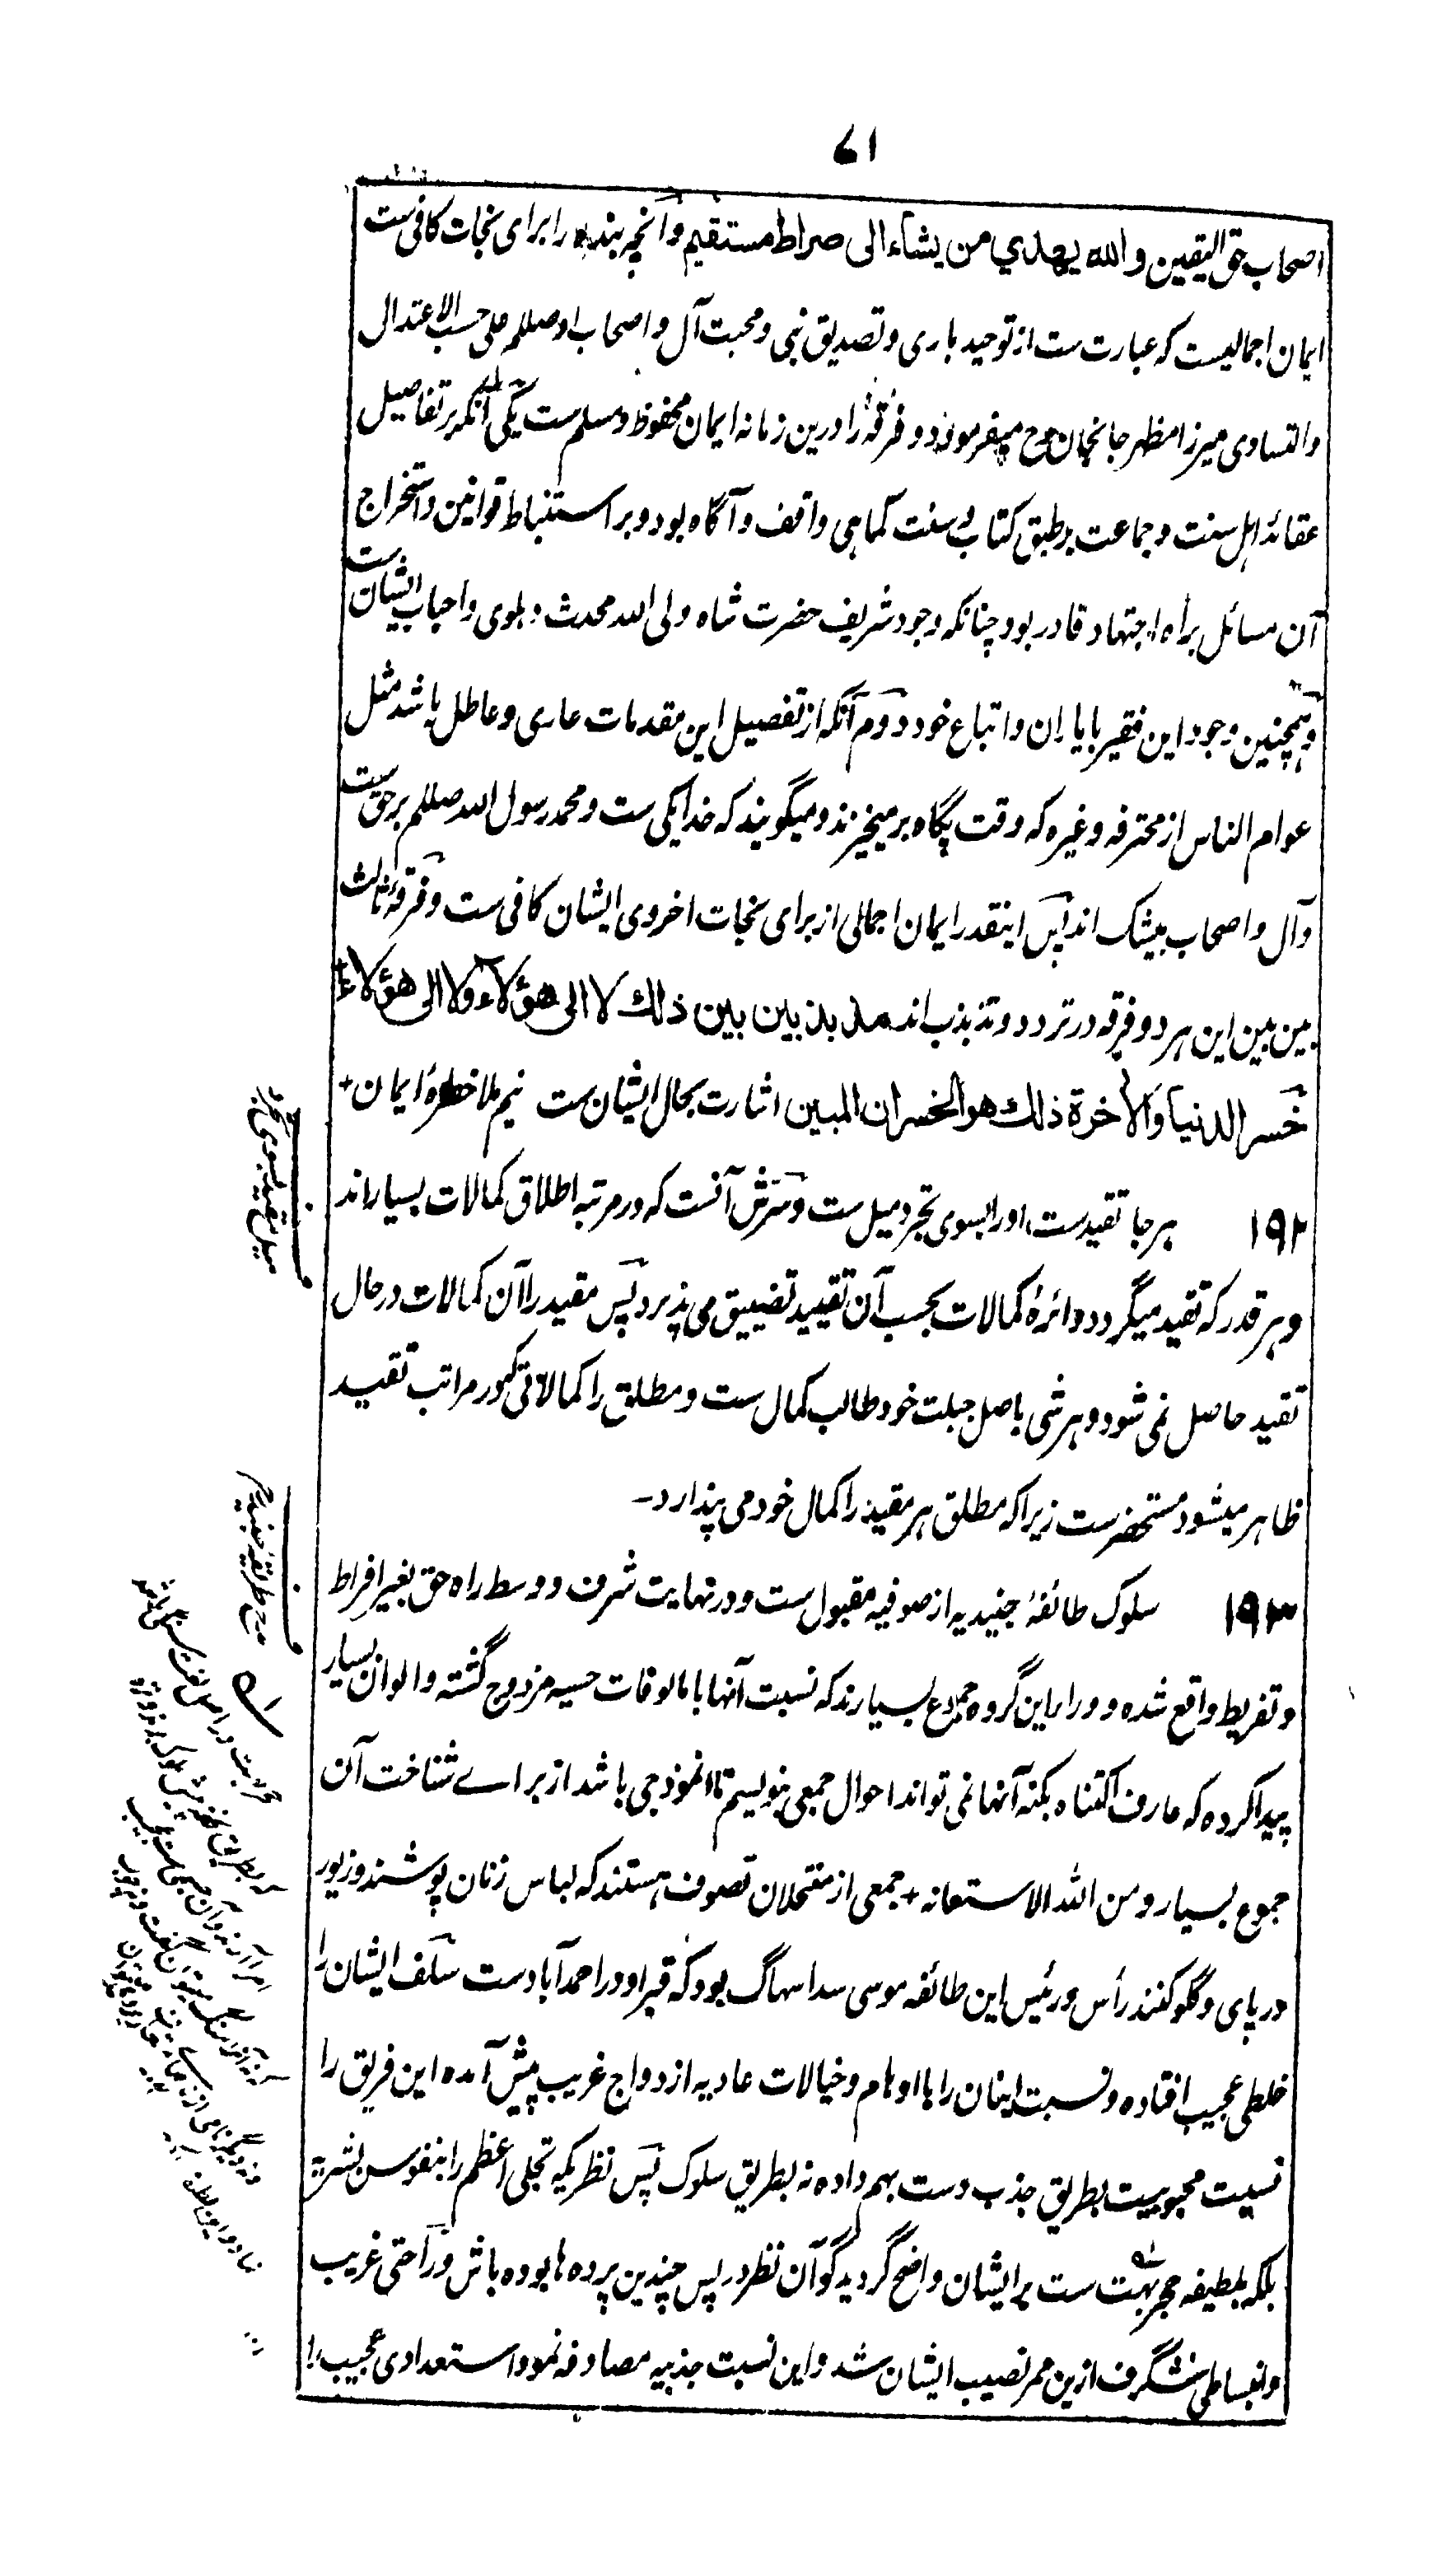 ۷۱
اصحاب حق الیقین والله یهدي من یشاء الی صراط مستقیم و آنچه بنده را برای نجات کافی ست
ایمان اجمالیست که عبارت ست از توحید باری و تصدیق نبی و محبت آل و اصحاب او صللم علی حسب الاعتدال
والتساوی میرزا مظهر جانجانان رح میفرمودند دو فرقه را درین زمانه ایمان محفوظ و مسلم ست یکی آنکه بر تفاصیل
عقائد اہل سنت و جماعت بر طبق کتاب و سنت کماہی واقف و آگاه بود و بر استنباط قوانین و استخراج
آن مسائل براه اجتهاد قادر بود چنانکه وجود شریف حضرت شاه ولی الله محدث دہلوی و احباب ایشان ست
و ہمچنین وجود این فقیر با یاران و اتباع خود دوم آنکه از تفصیل این مقدمات عاری و عاطل باشد مثل
عوام الناس از محترفه و غیره که وقت پگاه بر میخیزند و میگویند که خدا یکی ست و محمد رسول الله صللم برحق ست
و آل و اصحاب بیشک اند پس اینقدر ایمان اجمالی از برای نجات اخروی ایشان کافی ست و فرقهٔ ثالث
بین بین این ہر دو فرقه در تردد و تذبذب اند مذبذبین بین ذلك لا الی هؤلاء ولا الی هؤلاء
خسر الدنیا والاخرة ذلك هو الخسران المبین اشارت بحال ایشان ست نیم ملا خطرهٔ ایمان +
۱۹۲ ہر جا تقیدست او را بسوی تجرد میل ست و سرش آنست که در مرتبه اطلاق کمالات بسیار اند
و ہر قدر که تقید میگردد دائرهٔ کمالات بحسب آن تقیید تضییق می پذیرد پس مقید را آن کمالات در حال
تقید حاصل نمی شود و ہر شی باصل جبلت خود طالب کمال ست و مطلق را کمالاتی که در مراتب تقید
ظاہر میشود مستحضرست زیرا که مطلق ہر مقید را کمال خود می پندارد-
۱۹۳ سلوک طائفهٔ جنیدیه از صوفیه مقبول ست و در نہایت شرف و وسط راه حق بغیر افراط
و تفریط واقع شده و وراء این گروه جموع بسیارند که نسبت آنها با مالوفات حسیه مزدوج گشته و الوان بسیار
پیدا کرده که عارف اکتناه بکنه آنها نمی تواند احوال جمعی بنویسم تا انموذجی باشد از براے شناخت آن
جموع بسیار و من الله الاستعانه + جمعی از منتحلان تصوف ہستند که لباس زنان پوشند و زیور
در پای و گلو کنند رأس و رئیس این طائفه موسی سدا سہاگ بود که قبر او در احمدآبادست سلف ایشان را
خلطی عجیب افتاده و نسبت اینان را با اوہام و خیالات عادیه ازدواج غریب پیش آمده این فریق را
نسبت محبوبیت بطریق جذب دست بہم داده نه بطریق سلوک پس نظریکه تجلی اعظم را بنفوس بشریه
بلکه بلطیفه حجر بہت ست بر ایشان واضح گردید گو آن نظر در پس چندین پرده ہا بوده باش و راحتی غریب
و انبساطی شگرف ازین ممر نصیب ایشان شد و این نسبت جذبیه مصادفه نمود استعدادی عجیب را
میل مقید بسوی تجرد
مدح طریقهٔ جنیدیه